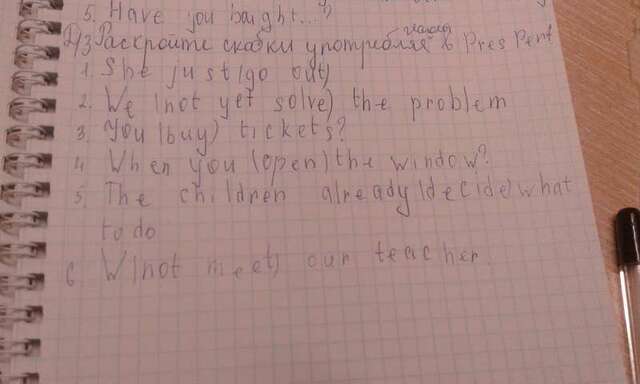 5. Have you baught...?
Д/З Раскройте скобки употребляя глагол в Pres Perf
1. She just (go out)
2. We (not yet solve) the problem
3. You (buy) tickets?
4. When you (open) the window?
5. The children already (decide) what
to do
6 W(not meet) our teacher.